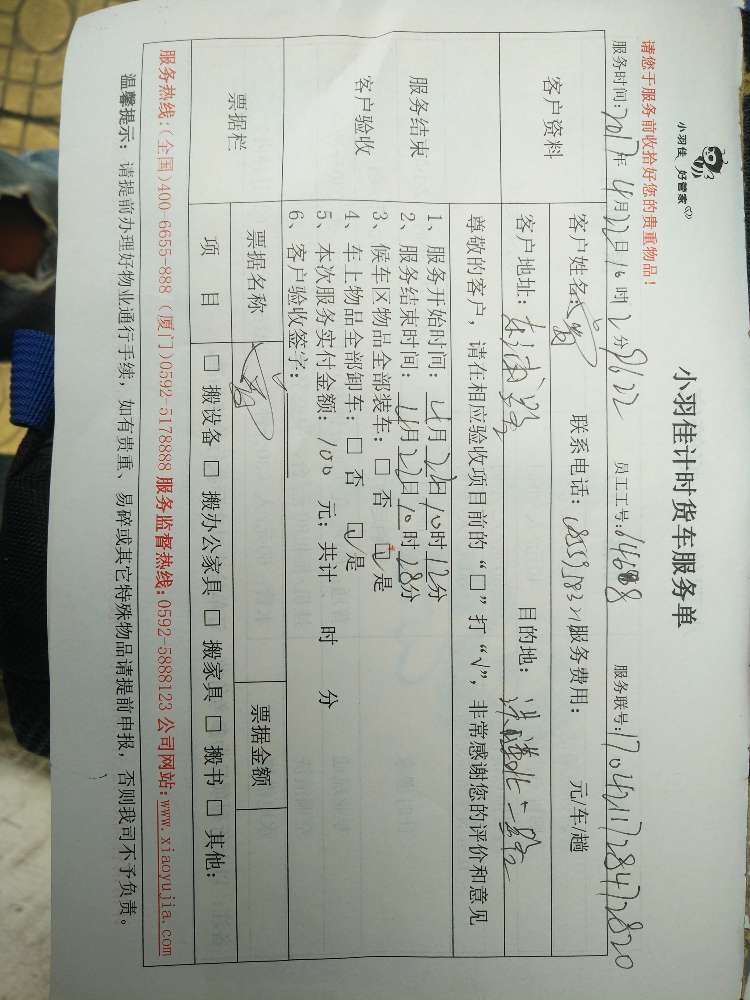 小羽佳 好管家
小羽佳计时货车服务单
请您于服务前收拾好您的贵重物品！
服务时间：2017年4月22日10时 分 员工工号： 服务联号：
客户资料
客户姓名： 联系电话： 服务费用： 元/车/趟
客户地址： 目的地：
尊敬的客户，请在相应验收项目前的“□”打“√”，非常感谢您的评价和意见
服务结束
客户验收
1、服务开始时间：4月22日10时12分
2、服务结束时间：4月22日10时28分
3、候车区物品全部装车：□ 否 ☑ 是
4、车上物品全部卸车：□ 否 ☑ 是
5、本次服务实付金额：100 元；共计 时 分
6、客户验收签字：
票据栏
票据名称 票据金额
项 目 □ 搬设备 □ 搬办公家具 □ 搬家具 □ 搬书 □ 其他：
服务热线：(全国)400-6655-888 (厦门)0592-5178888 服务监督热线：0592-5888123 公司网站：www.xiaoyujia.com
温馨提示：请提前办理好物业通行手续，如有贵重、易碎或其它特殊物品请提前申报，否则我司不予负责。